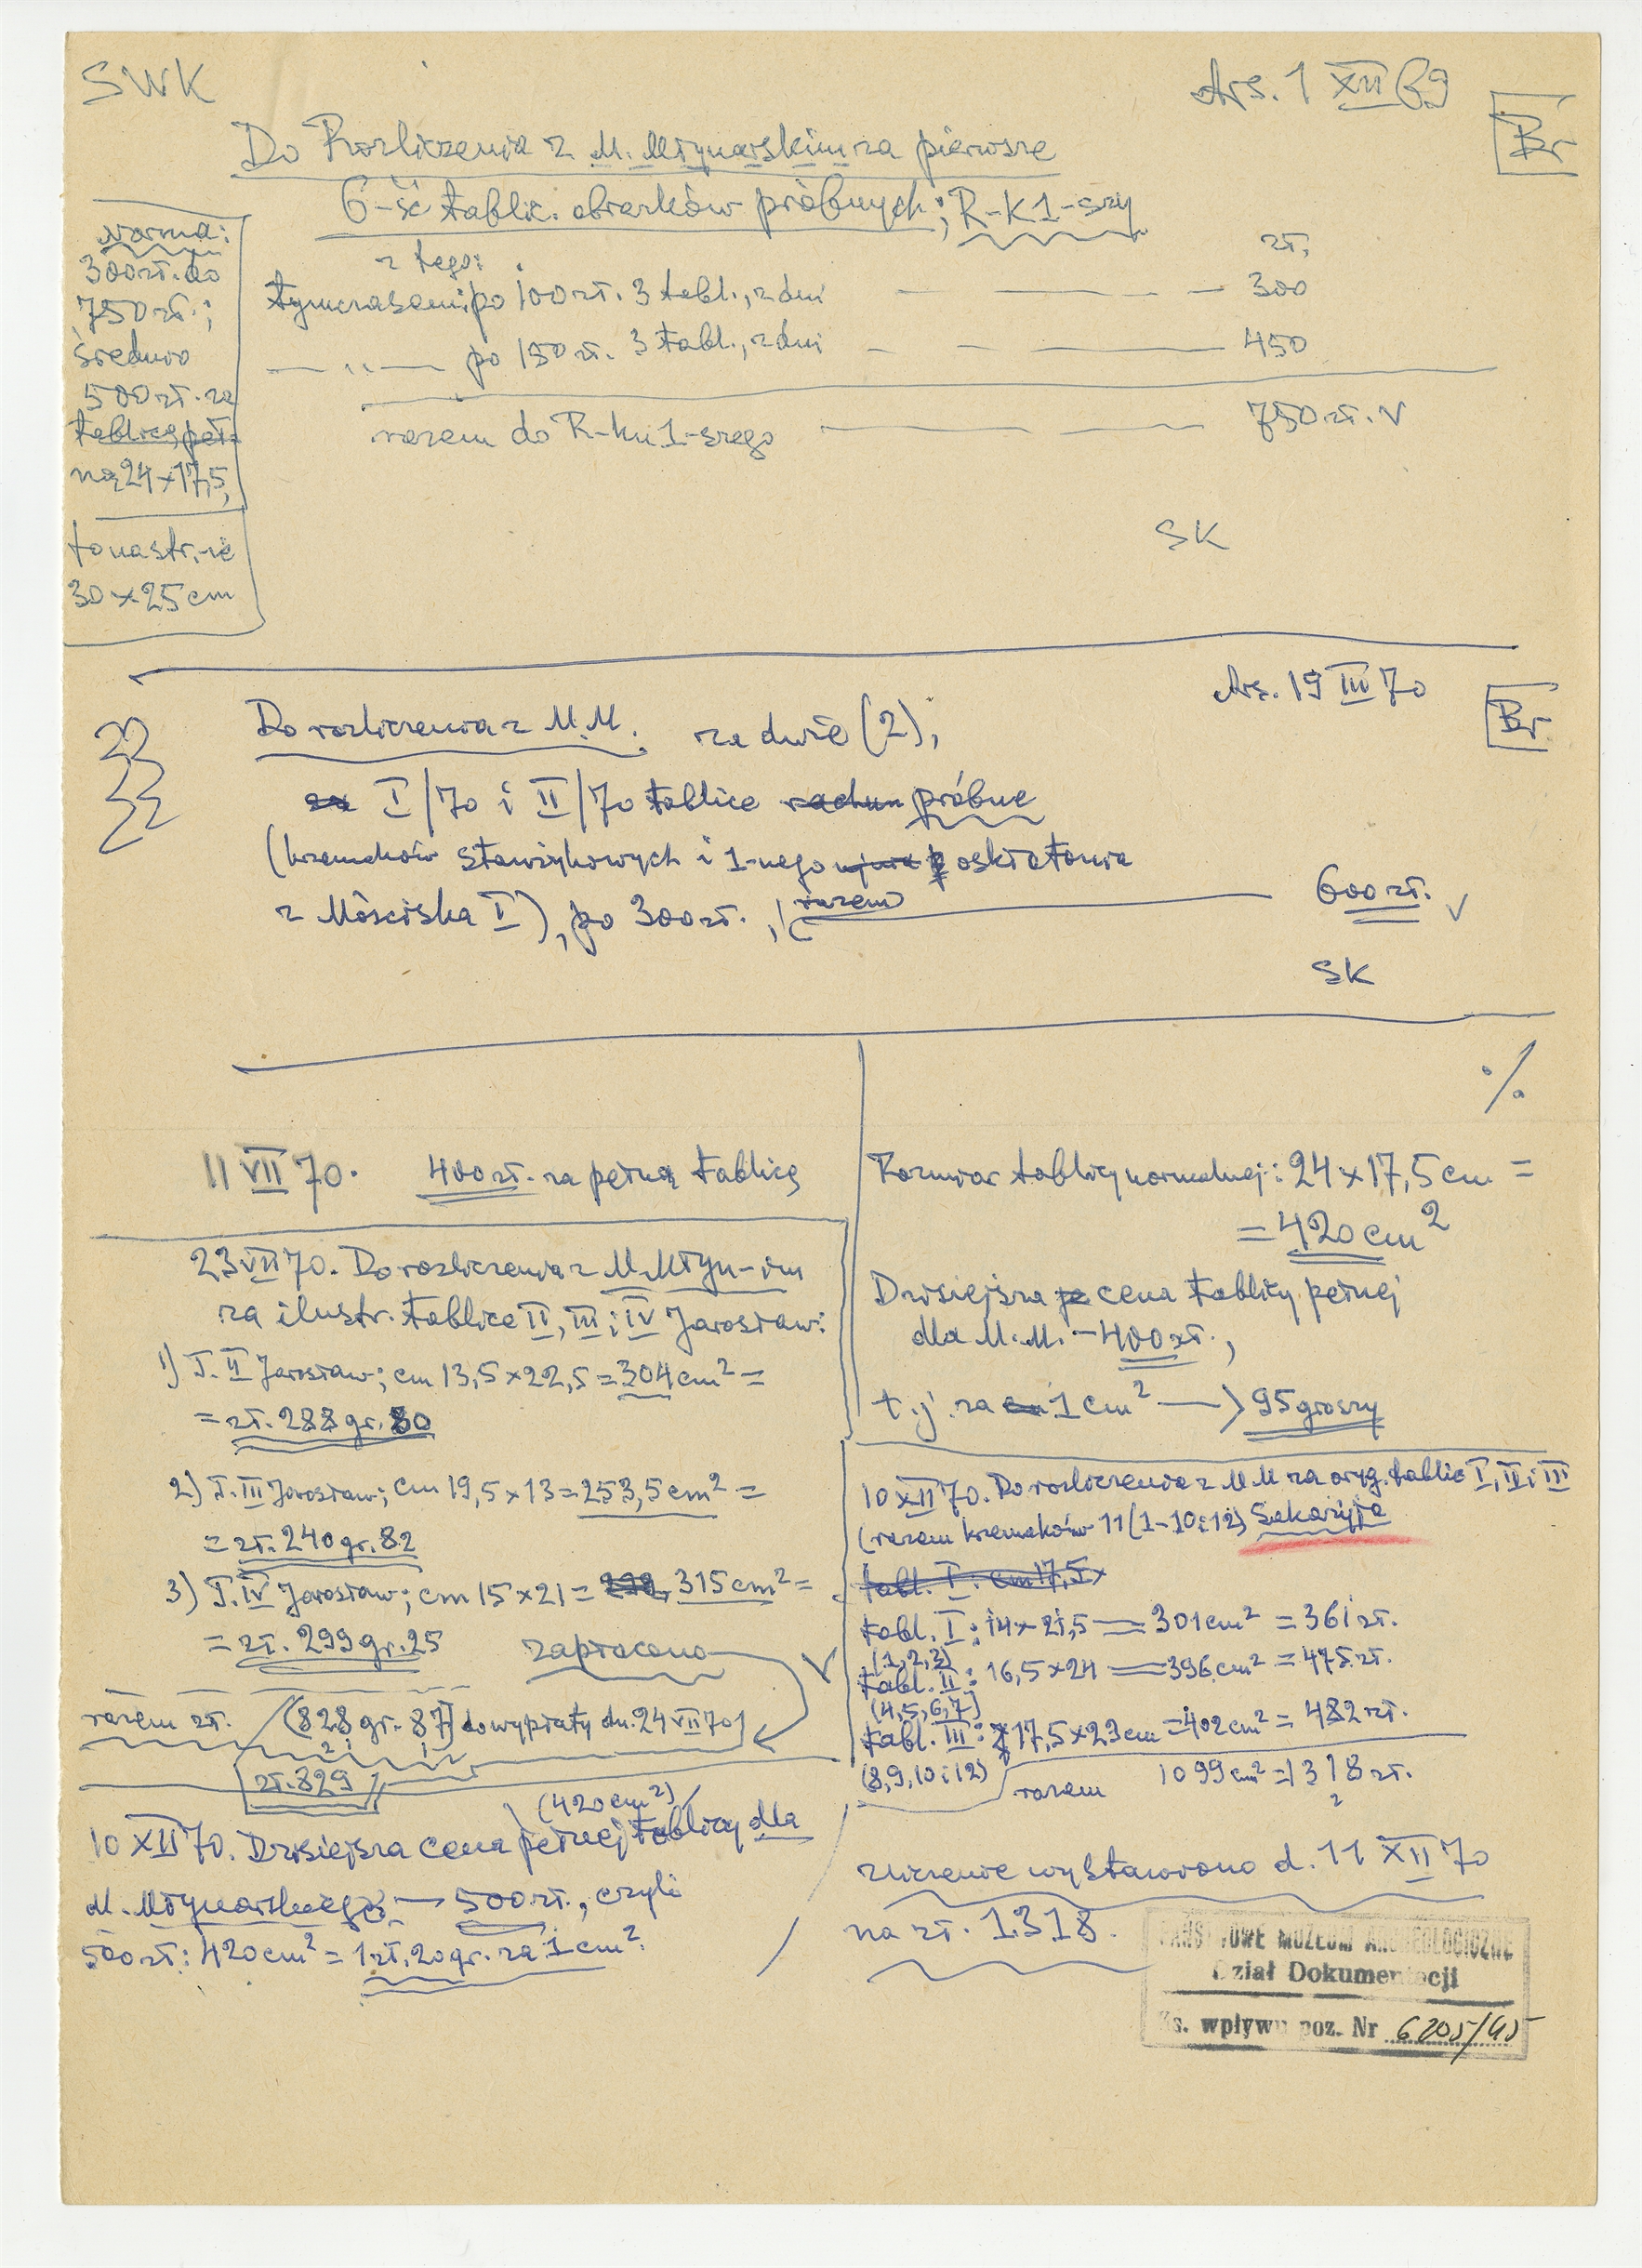 SWK
Ars. 1 XII 69
Br
Do Rozliczenia z M. Młynarskim za pierwsze
6-ść tablic. obrazków próbnych; R-K 1-szy
z tego:
zł;
tymczasem po 100 zł. 3 tabl., z dni — — — 300
— " — po 150 zł. 3 tabl., z dni — — — 450
razem do R-ku 1-szego — — — 750 zł. V
Norma:
300 zł. do
750 zł.;
średnio
500 zł. za
tablicę peł-
ną 24 x 17,5,
to na str.-ie
30 x 25 cm
SK
Ars. 19 III 70
Br
Do rozliczenia z M. M. za dwie (2),
I/70 i II/70 tablice rachun próbne
(krzemieków stawżykowych i 1-nego oskrełania
z Mościska I), po 300 zł., (razem — 600 zł. V
SK
%
11 VII 70. 400 zł. za pełną tablicę
23 VII 70. Do rozliczenia z M. Młyn-im
za ilustr. tablice II, III i IV Jarosław:
1) T. II Jarosław; cm 13,5 x 22,5 = 304 cm² =
= zł. 288 gr. 80
2) T. III Jarosław; cm 19,5 x 13 = 253,5 cm² =
= zł. 240 gr. 82
3) T. IV Jarosław; cm 15 x 21 = 315 cm² =
= zł. 299 gr. 25
zapłacono V
razem zł. (828 gr. 87) do wypłaty dn. 24 VII 70
zł. 829
(420 cm²)
10 XII 70. Dzisiejsza cena pełnej tablicy dla
M. Młynarskiego — 500 zł., czyli
500 zł: 420 cm² = 1 zł. 20 gr. za 1 cm².
Rozmiar tablicy normalnej: 24 x 17,5 cm =
= 420 cm²
Dzisiejsza cena tablicy pełnej
dla M. M. - 400 zł.,
t. j. za 1 cm² —> 95 groszy
10 XII 70. Do rozliczenia z M M za oryg. tablic I, II i III
(razem krzemieków 11 (1-10 i 12) Sakaryja
tabl. I: cm 17,5 x
tabl. I: 14 x 21,5 = 301 cm² = 361 zł.
(1,2,3)
tabl. II: 16,5 x 24 = 396 cm² = 475 zł.
(4,5,6,7)
tabl. III: 17,5 x 23 cm = 402 cm² = 482 zł.
(8,9,10 i 12)
razem 1099 cm² = 1318 zł.
zlicenie wystawiono d. 11 XII 70
na zł. 1318.
PAŃSTWOWE MUZEUM ARCHEOLOGICZNE
Dział Dokumentacji
Ks. wpływu poz. Nr 6205/45